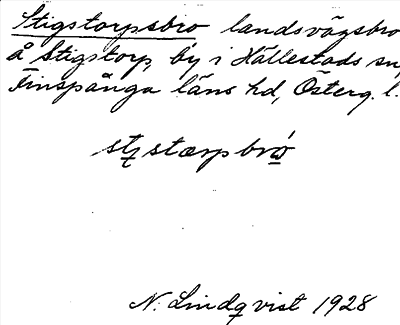 Stigstorpsbro landsvägsbro
å Stigstorp, by i Hällestads sn,
Finspånga läns hd, Österg. l.
stærpbrω
N. Lindqvist 1928